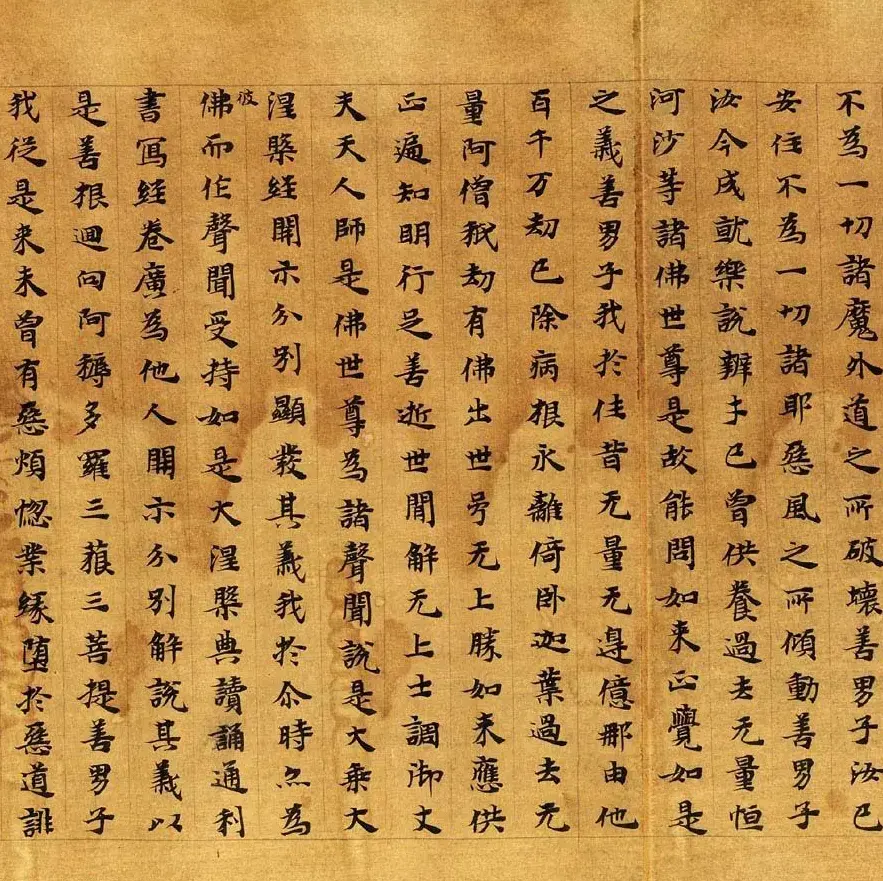 不為一切諸魔外道之所破壞善男子汝已
安住不為一切諸耶惡風之所傾動善男子
汝今成就樂說辯才已曾供養過去无量恒
河沙等諸佛世尊是故能問如来正覺如是
之義善男子我於住昔无量无邊億那由他
百千万劫已除病根永離倚卧迦葉過去无
量阿僧祇劫有佛出世号无上勝如来應供
正遍知明行足善逝世間解无上士調御丈
夫天人師是佛世尊為諸聲聞說是大乘大
涅槃経開示分別顯發其義我於尒時亦為
彼佛而作聲聞受持如是大涅槃典讀誦通利
書寫経卷廣為他人開示分別解說其義以
是善根迴向阿耨多羅三藐三菩提善男子
我從是来未曾有惡煩惱業緣墮於惡道誹